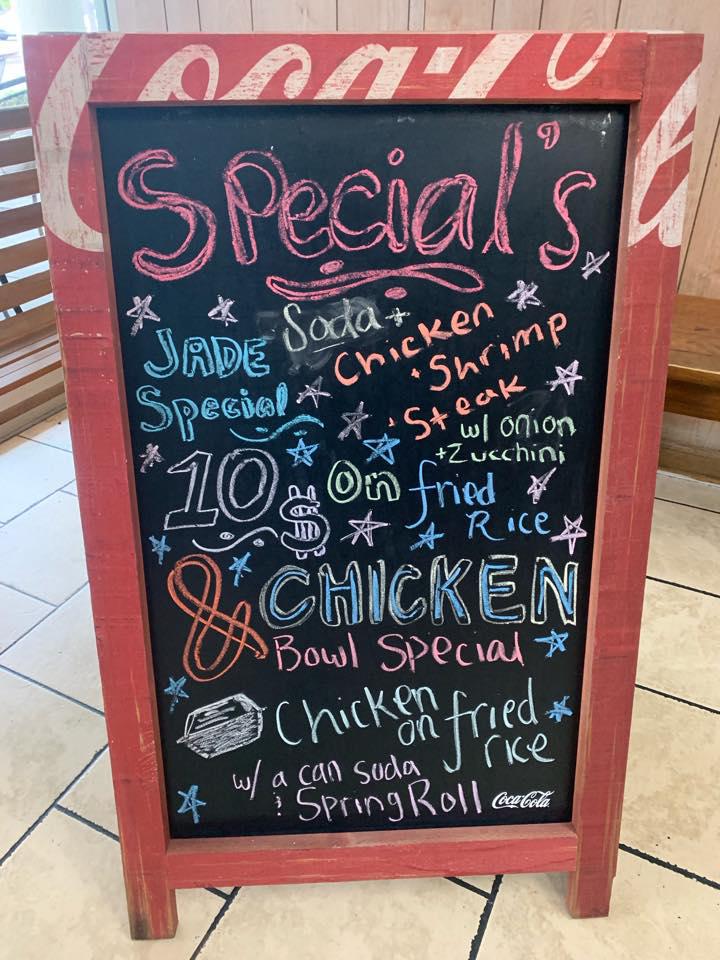 Coca-Cola
Special's
JADE
Special
10$
Soda +
Chicken
• Shrimp
• Steak
w/ onion
+ Zucchini
On fried
Rice
& CHICKEN
Bowl Special
Chicken
on fried
rice
w/ a can soda
& Spring Roll
Coca-Cola